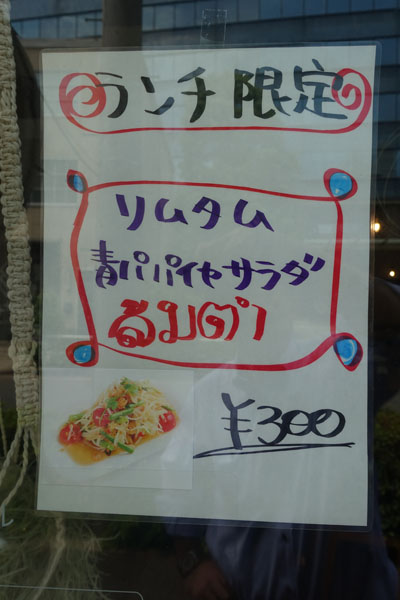 ランチ限定
ソムタム
青パパイヤサラダ
ส้มตำ
¥300